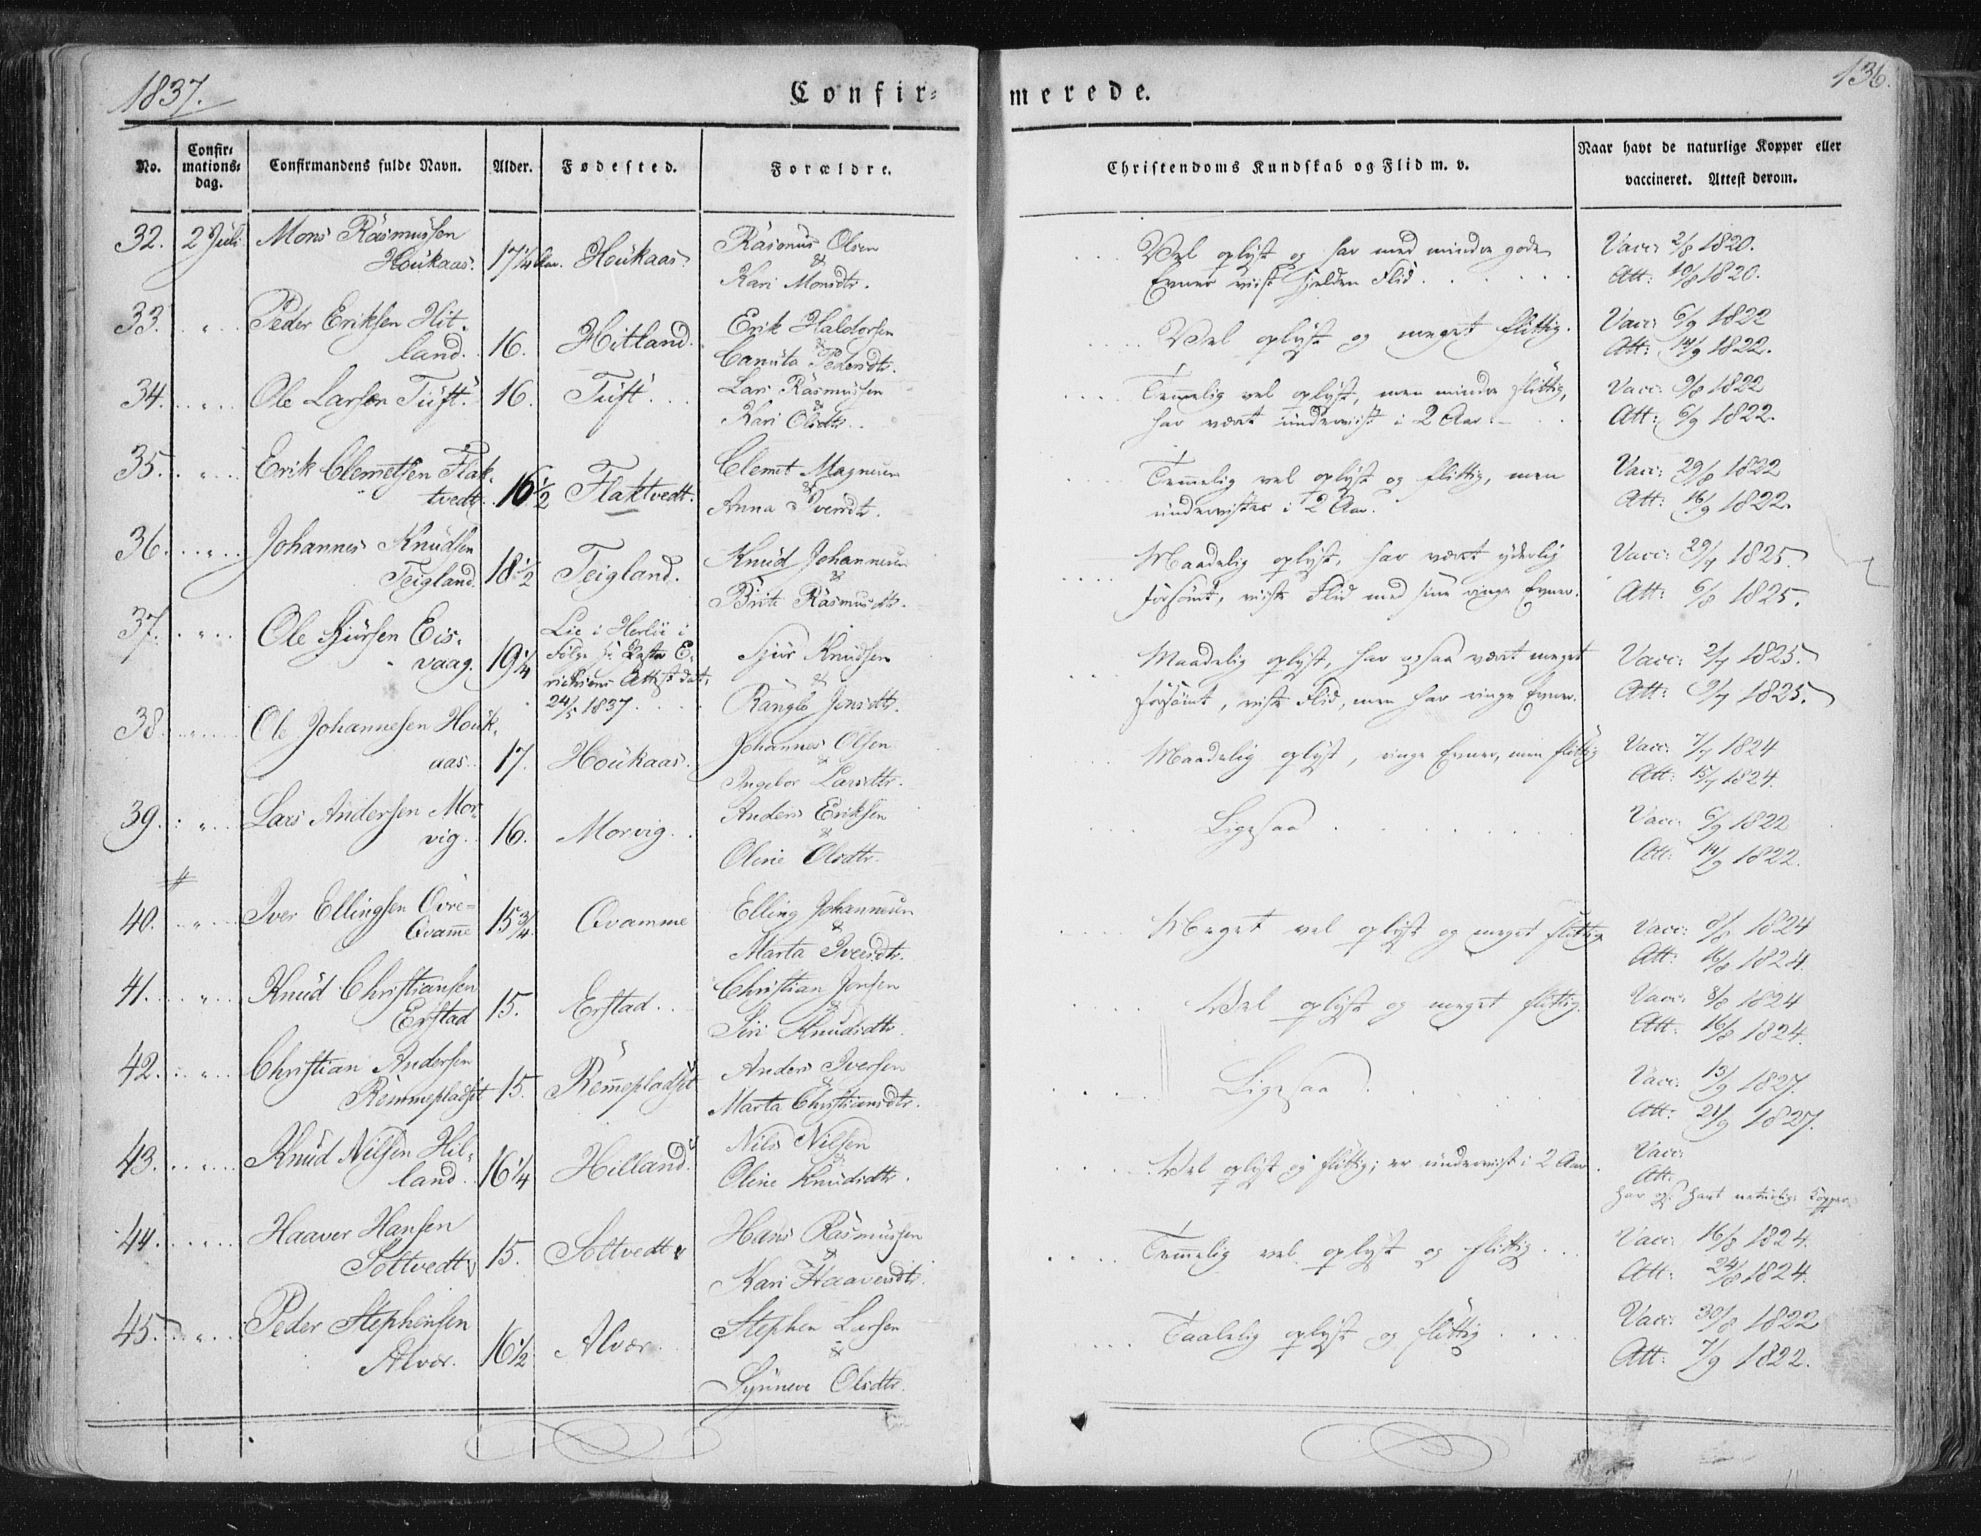 1837.
Confir=
merede.
136.
No.
Confir=
mations=
dag.
Confirmandens fulde Navn.
Alder.
Fødested.
Forældre.
Christendoms Kundskab og Flid m. v.
Naar havt de naturlige Kopper eller
vaccineret. Attest derom.
32. 2 Juli Mons Rasmussen
Houkaas. 17 1/4 Aar. Houkaas.
Rasmus Olsen
&
Kari Monsdtr.
Vel oplyst og har med mindre gode
Evner viist sjelden Flid.
Vacc: 2/8 1820.
Att: 10/8 1820.
33. " Peder Eriksen Hit-
land. 16. Hitland.
Erik Haldorsen
&
Canuta Pedersdtr.
Vel oplyst og meget flittig.
Vacc: 6/9 1822
Att: 14/9 1822.
34. " Ole Larsen Tuft. 16. Tuft.
Lars Rasmussen
&
Kari Olsdtr.
Temmelig vel oplyst, men mindre flittig,
har været underviist i 2 Aar.
Vacc: 9/8 1822
Att: 6/9 1822.
35. " Erik Clemetsen Flak-
tvedt. 16 1/2 Flaktvedt.
Clemet Magnesen
&
Anna Iversdtr.
Temmelig vel oplyst og flittig, men
undervistes i 2 Aar.
Vacc: 29/8 1822
Att: 16/9 1822.
36. " Johannes Knudsen
Teigland. 18 1/2 Teigland.
Knud Johannesen
&
Brite Rasmusdtr.
Maadelig oplyst, har været yderlig
forsømt, viiste Flid med sine ringe Evner.
Vacc: 29/7 1825.
Att: 6/8 1825.
37. " Ole Sjursen Eis-
vaag. 19 1/4
Lie i Herlø i
Følge Hr. Pastor E-
richsens Attest dat.
24/5 1837.
Sjur Knudsen
&
Rangle Jonsdtr.
Maadelig oplyst, har ogsaa været meget
forsømt, viiste Flid, men har ringe Evner.
Vacc: 2/7 1825.
Att: 9/7 1825.
38. " Ole Johannesen Houk-
aas. 17. Houkaas.
Johannes Olsen
&
Ingebor Larsdtr.
Maadelig oplyst, ringe Evner, men flittig
Vacc: 7/7 1824
Att: 15/7 1824.
39. " Lars Andersen Mor-
vig. 16. Morvig.
Anders Eriksen
&
Oline Olsdtr.
Ligesaa
Vacc: 6/9 1822
Att: 14/9 1822.
40. " Iver Ellingsen Øvre-
Qvamme 15 3/4 Qvamme
Elling Johannesen
&
Marta Iversdtr.
Meget vel oplyst og meget flittig
Vacc: 8/8 1824
Att: 16/8 1824.
41. " Knud Christiansen
Erstad 15. Erstad.
Christian Jensen
&
Siri Knudsdtr.
Vel oplyst og meget flittig.
Vacc: 8/8 1824
Att: 16/8 1824.
42. " Christian Andersen
Remmepladset 15. Remmepladset
Anders Iversen
&
Marta Christiansdtr.
Ligesaa
Vacc: 13/9 1827.
Att: 21/9 1827.
43. " Knud Nilsen Hil-
land. 16 1/4 Hilland.
Nils Nilsen
&
Oline Knudsdtr.
Vel oplyst og flittig; er underviist i 2 Aar.
Vacc:
Att:
har havt naturlige Kopper
44. " Haaver Hansen
Soltvedt 15. Soltvedt
Hans Rasmussen
&
Kari Haaversdtr.
Temmelig vel oplyst og flittig.
Vacc: 16/8 1824.
Att: 24/8 1824.
45. " Peder Stephensen
Alvær. 16 1/2 Alvær.
Stephen Larsen
&
Synneve Olsdtr.
Taalelig oplyst og flittig
Vacc: 30/8 1822
Att: 7/9 1822.